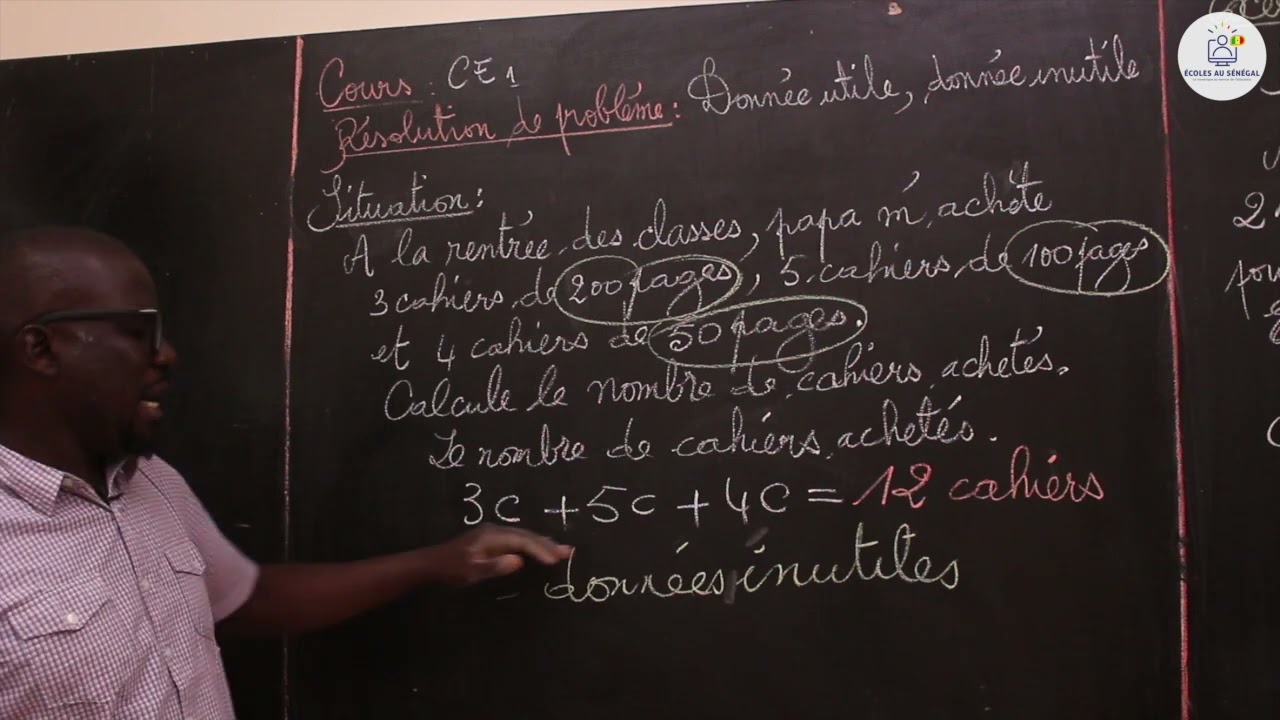 Cours : CE1
Résolution de problème : Donnée utile, donnée inutile
Situation :
A la rentrée des classes, papa m'achète
3 cahiers de 200 pages, 5 cahiers de 100 pages
et 4 cahiers de 50 pages.
Calcule le nombre de cahiers achetés.
Le nombre de cahiers achetés.
3c + 5c + 4c = 12 cahiers
données inutiles
ÉCOLES AU SÉNÉGAL